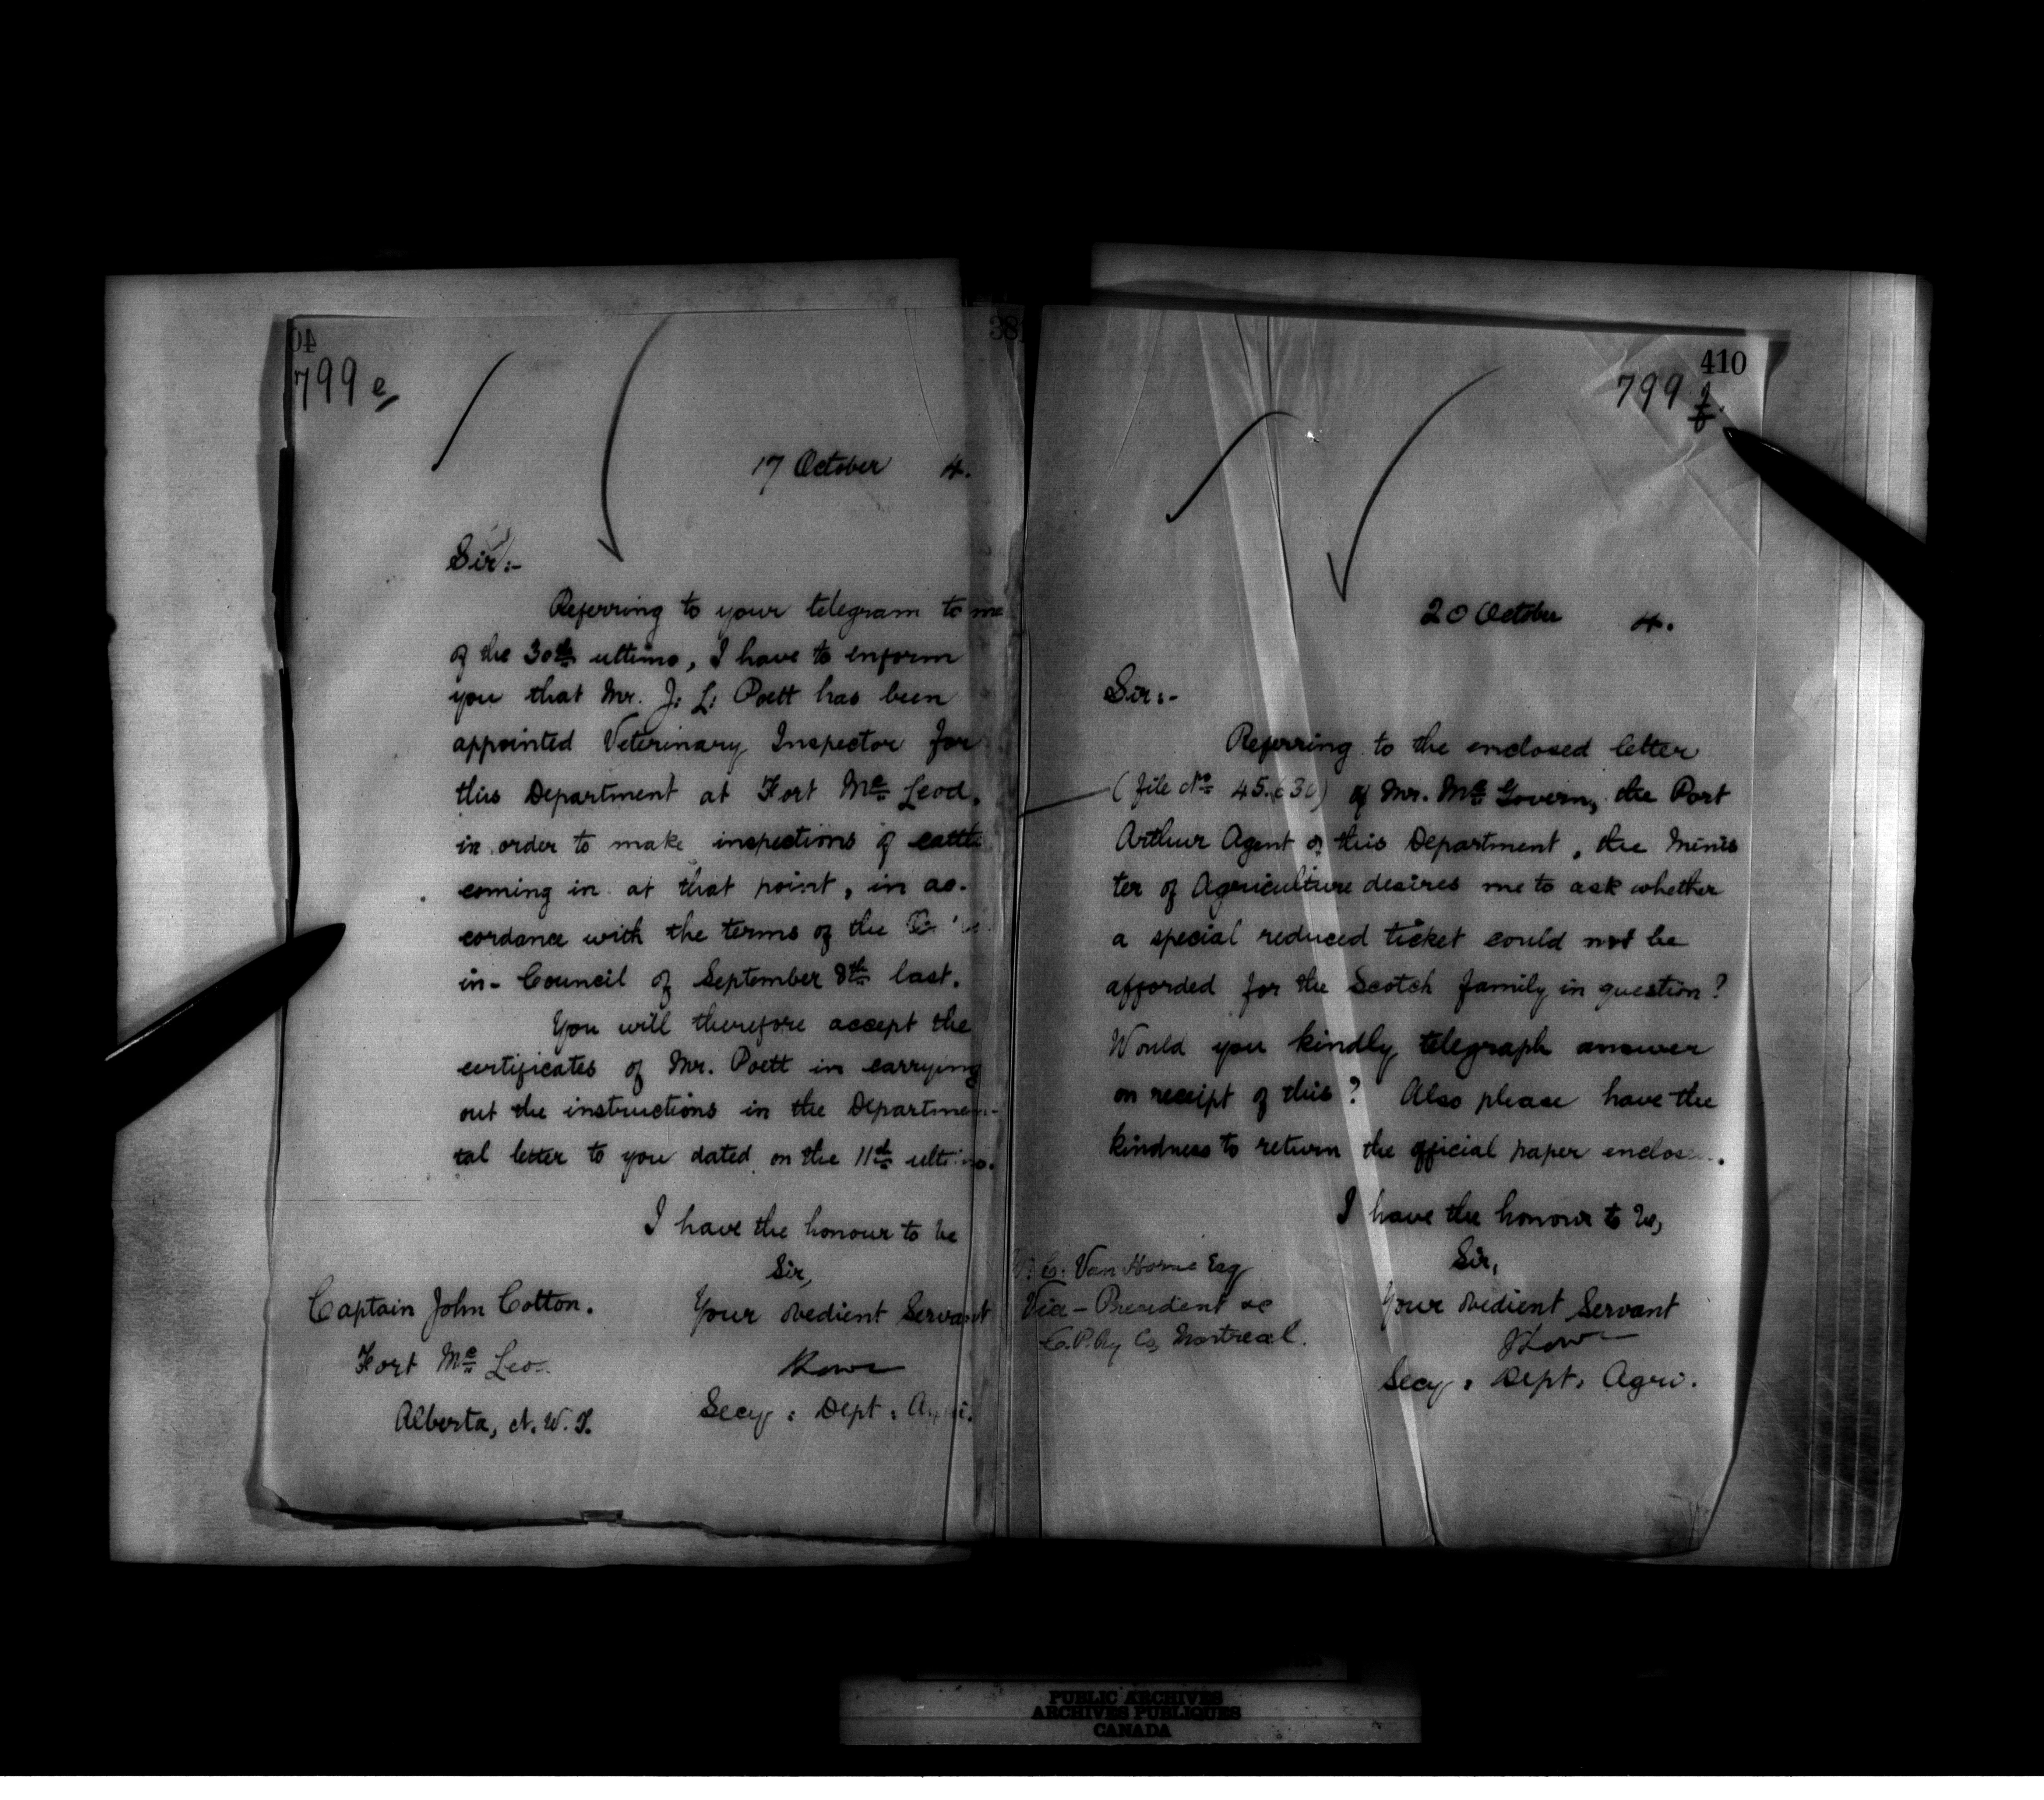 799 e
17 October 4.
Sir:-
Referring to your telegram to me
of the 30th ultimo, I have to inform
you that Mr. J. L. Poett has been
appointed Veterinary Inspector for
this Department at Fort Mc Leod,
in order to make inspections of cattle
coming in at that point, in ac-
cordance with the terms of the
in-Council of September 8th last.
You will therefore accept the
certificates of Mr. Poett in carrying
out the instructions in the Departmen-
tal letter to you dated on the 11th ultimo.
I have the honour to be
Sir,
Your obedient Servant
Lowe
Secy: Dept: Agri.
Captain John Cotton.
Fort Mc Leo
Alberta, N.W.T.
38
410
799
20 October 4.
Sir:-
Referring to the enclosed letter
(file No 45.630) of Mr. Mc Govern, the Port
Arthur Agent of this Department, the Minis
ter of Agriculture desires me to ask whether
a special reduced ticket could not be
afforded for the Scotch family in question?
Would you kindly telegraph answer
on receipt of this? Also please have the
kindness to return the official paper enclosed.
I have the honour to be,
Sir,
Your obedient Servant
J Lowe
Secy: Dept: Agri.
C. Van Horne Esq
Vice-President &c
C.P.Ry Co, Montreal.
PUBLIC ARCHIVES
ARCHIVES PUBLIQUES
CANADA